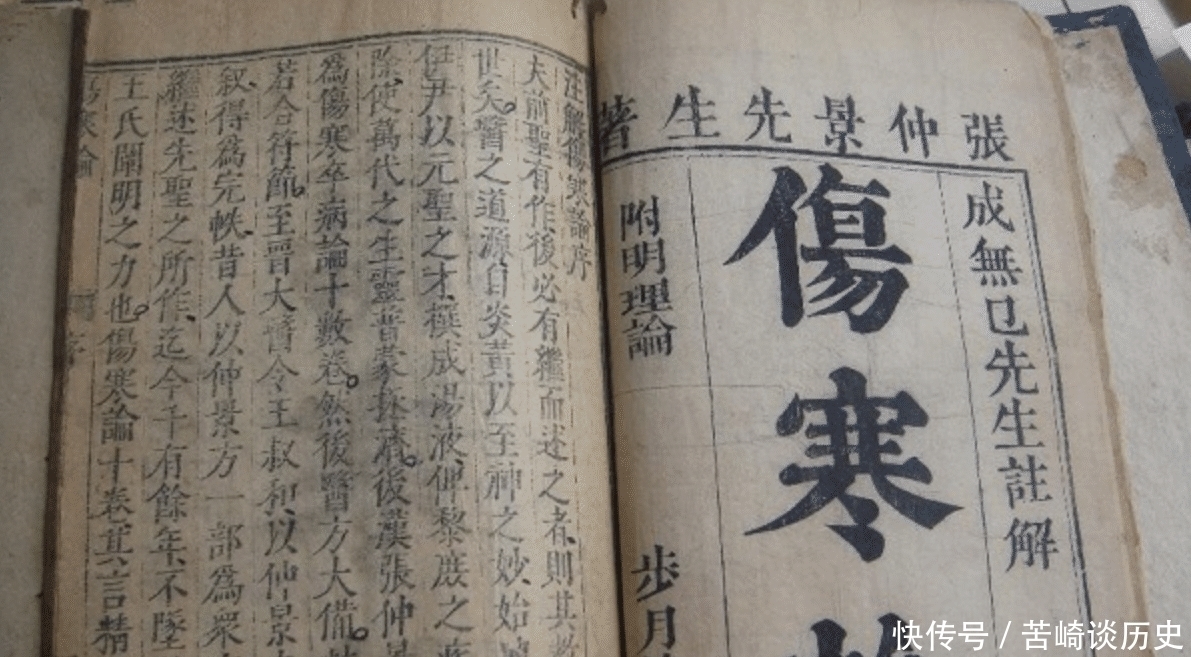 張仲景先生著
成無已先生註解
傷寒
附明理論
步月
注解傷寒論序
夫前聖有作後必有繼而述之者則其教
世矣。醫之道源自炎黃以至神之妙始
伊尹以元聖之才撰成湯液俾黎庶之
除使萬代之生靈普蒙拯濟。後漢張仲
為傷寒卒病論十數卷。然後醫方大備。
若合符節。至晉大醫令王叔和以仲景
叙得為完帙昔人以仲景方一部為衆
繼述先聖之所作迄今千有餘年不墜
王氏闡明之力也。傷寒論十卷其言精
傷寒論
序
快传号 / 苦崎谈历史